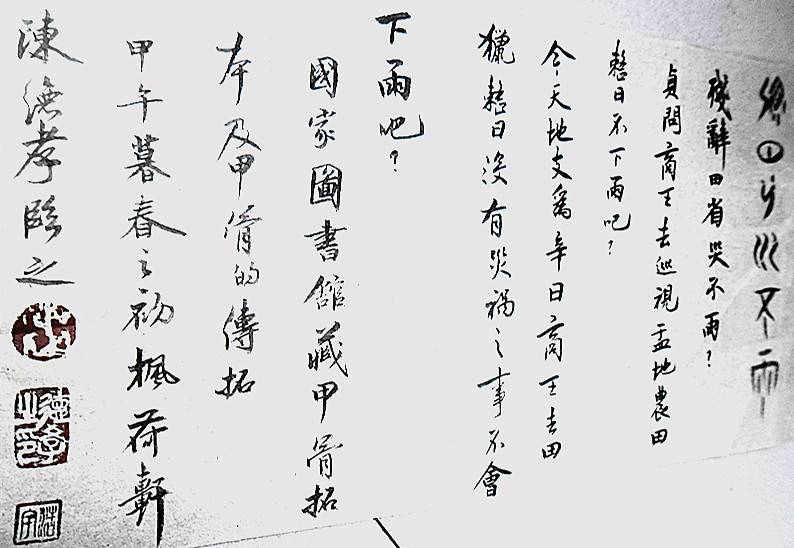 殘辭田省災不雨？
貞問商王去巡視盂地農田
整日不下雨吧？
今天地支為辛日商王去田
獵整日沒有災禍之事不會
下雨吧？
國家圖書館藏甲骨拓
本及甲骨的傳拓
甲午暮春之初楓荷軒
陳德孝臨之